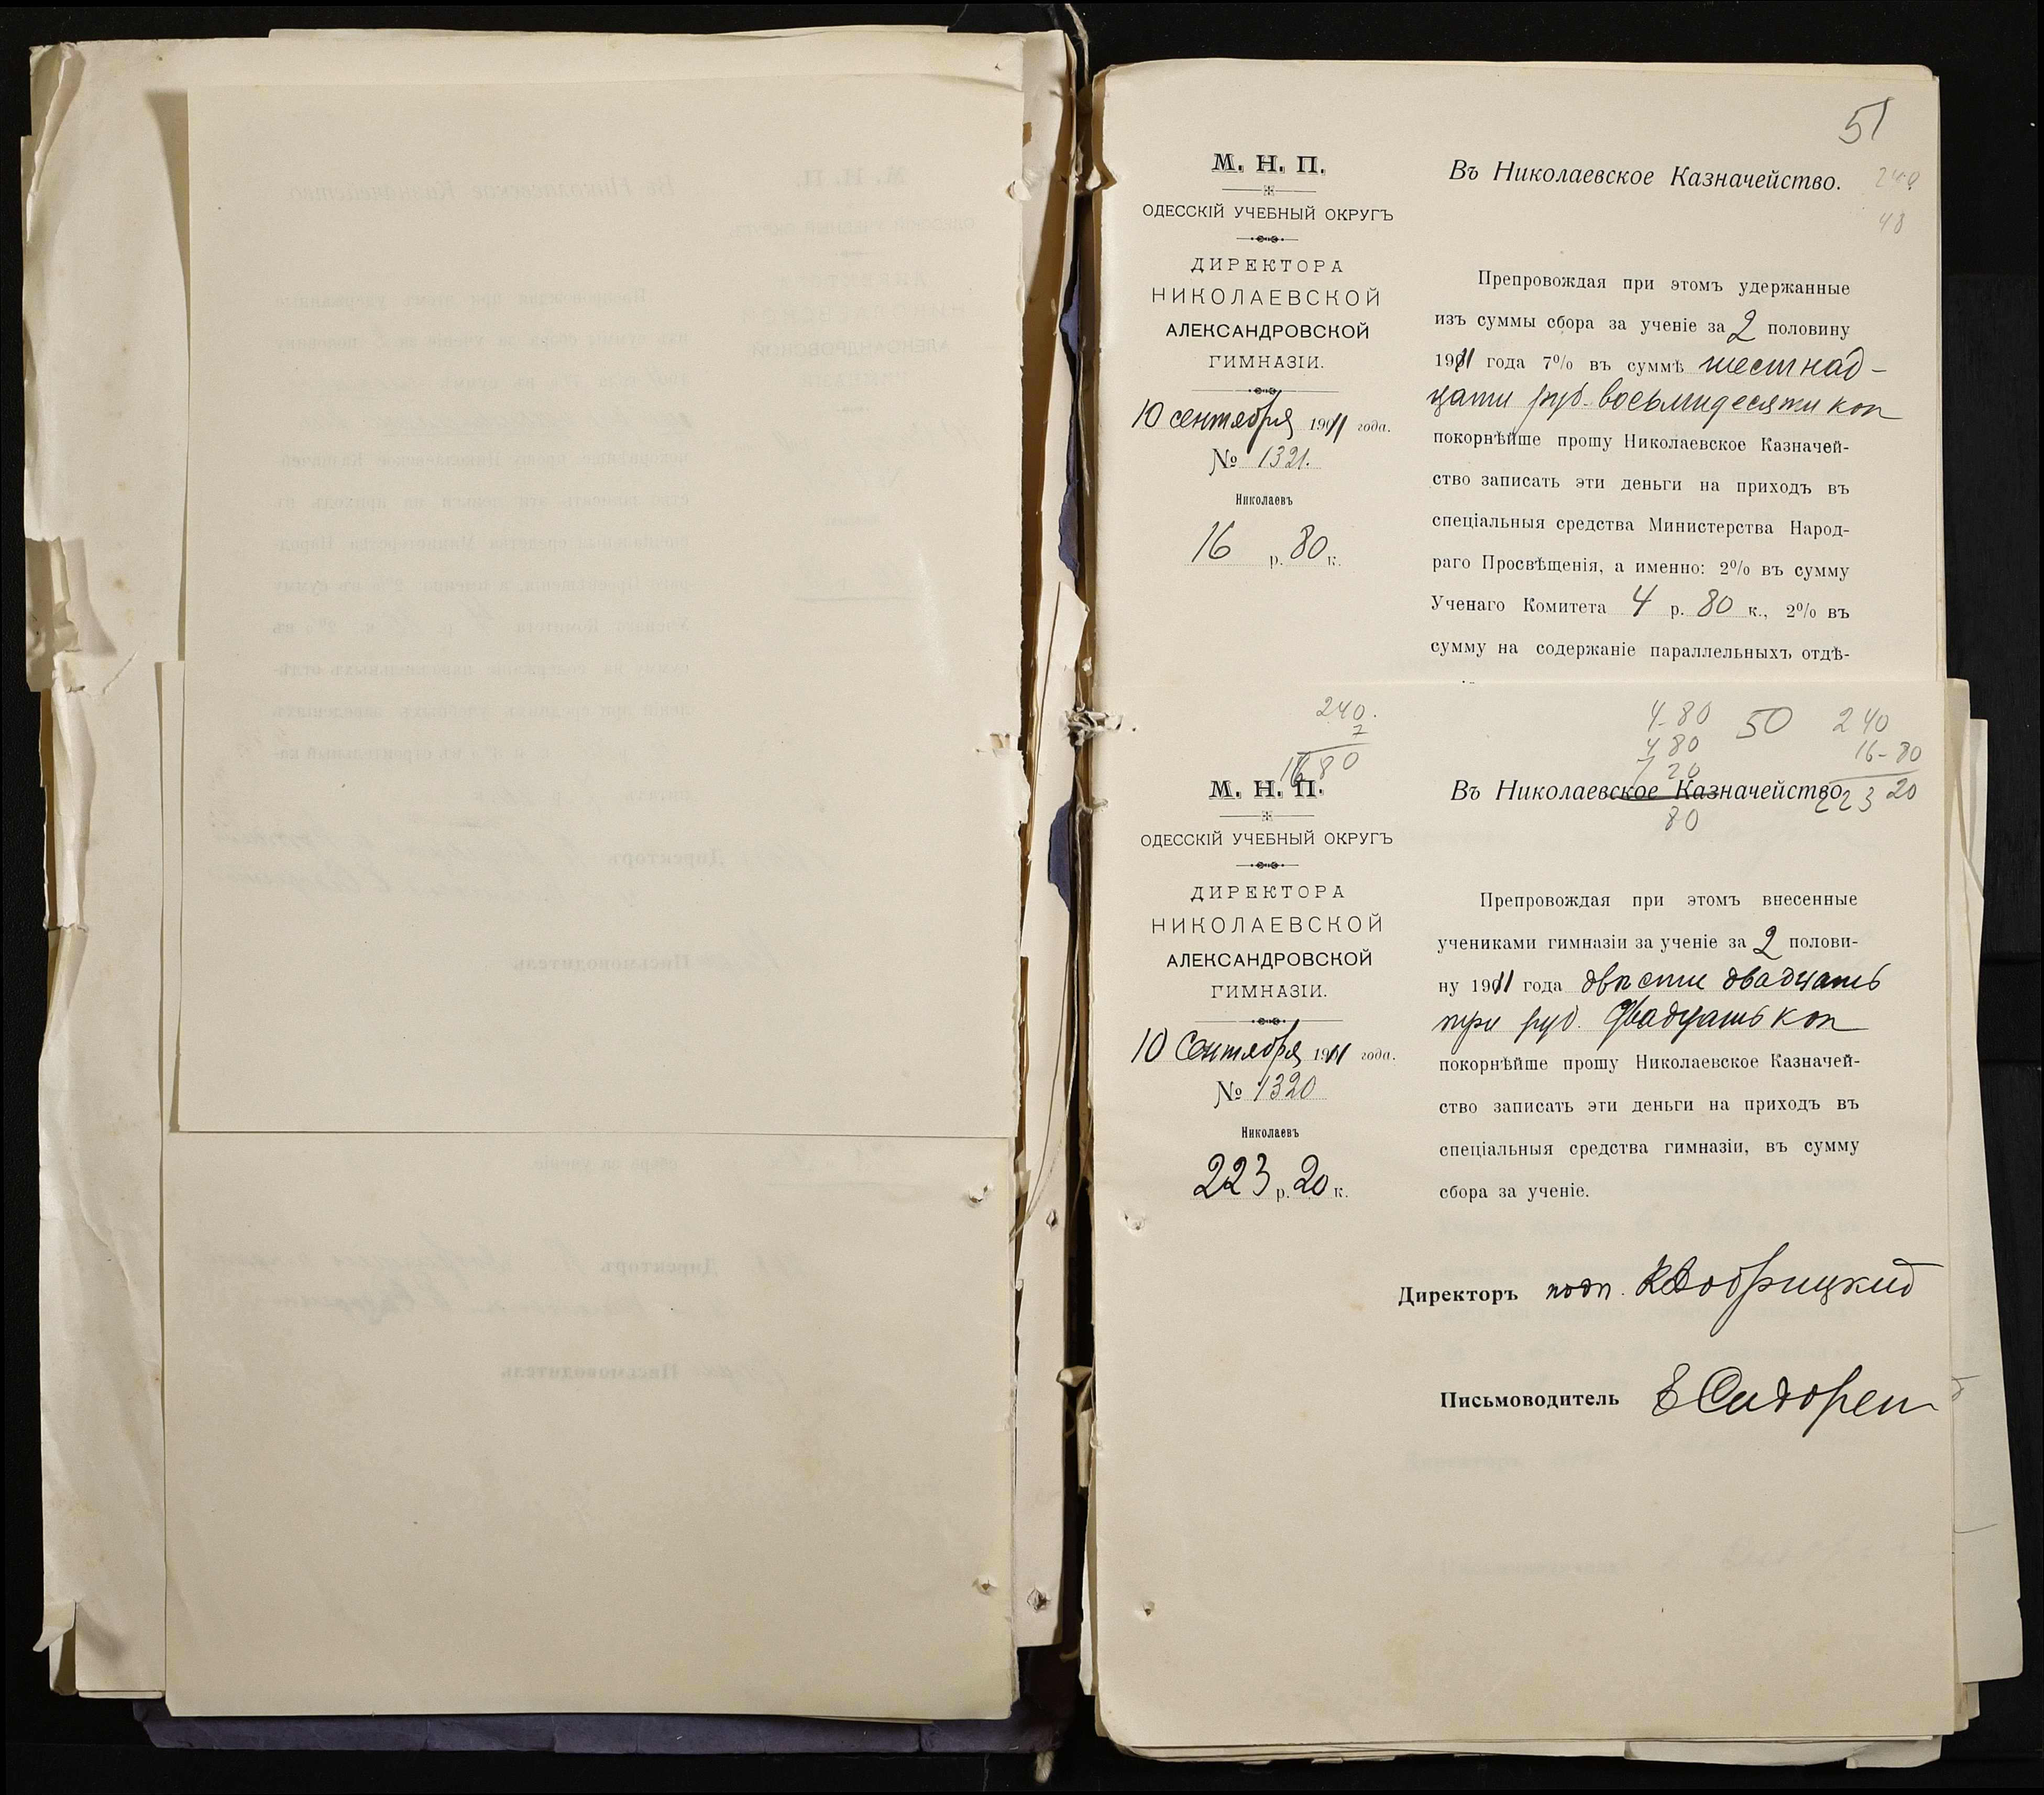 51
М. Н. П.
ОДЕССКІЙ УЧЕБНЫЙ ОКРУГЪ
ДИРЕКТОРА
НИКОЛАЕВСКОЙ
АЛЕКСАНДРОВСКОЙ
ГИМНАЗІИ.
10 сентября 1911 года.
№ 1321.
Николаевъ
16 р. 80 к.
Въ Николаевское Казначейство.
240
48
Препровождая при этомъ удержанные
изъ суммы сбора за ученіе за 2 половину
1911 года 7% въ суммѣ шестнад-
цати руб. восьмидесяти коп
покорнѣйше прошу Николаевское Казначей-
ство записать эти деньги на приходъ въ
спеціальныя средства Министерства Народ-
раго Просвѣщенія, а именно: 2% въ сумму
Ученаго Комитета 4 р. 80 к., 2% въ
сумму на содержаніе параллельныхъ отдѣ-
240.
7
1680
4-80
4 80
7 20
80
50
240
16-80
223 20
М. Н. П.
ОДЕССКІЙ УЧЕБНЫЙ ОКРУГЪ
ДИРЕКТОРА
НИКОЛАЕВСКОЙ
АЛЕКСАНДРОВСКОЙ
ГИМНАЗІИ.
10 Сентября 1911 года.
№ 1320
Николаевъ
223 р. 20 к.
Въ Николаевское Казначейство
Препровождая при этомъ внесенные
учениками гимназіи за ученіе за 2 полови-
ну 1911 года двѣсти двадцать
три руб. двадцать коп
покорнѣйше прошу Николаевское Казначей-
ство записать эти деньги на приходъ въ
спеціальныя средства гимназіи, въ сумму
сбора за ученіе.
Директоръ подп. К Добрицкий
Письмоводитель Е Сидорен